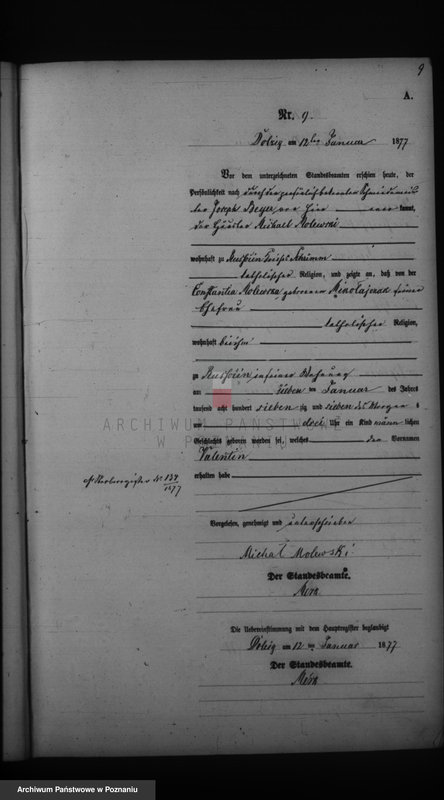 9
A.
Nr. 9.
Dolzig am 12ten Januar 1877
Vor dem unterzeichneten Standesbeamten erschien heute, der
Persönlichkeit nach durch den persönlich bekannten Schmiedemeis
ter Joseph Beyer von hier kannt,
der Häusler Michael Molewski
wohnhaft zu Kreises Schrimm
katholischer Religion, und zeigte an, daß von der
Constantia Molewska geborenen Mikołajczak seiner
Ehefrau
katholischer Religion,
wohnhaft bei ihm
zu in seiner Wohnung
am sieben ten Januar des Jahres
tausend acht hundert sieben zig und sieben des Morgens
um drei Uhr ein Kind männ lichen
Geschlechts geboren worden sei, welches den Vornamen
Valentin
erhalten habe
Sterberegister No 139
1877
Vorgelesen, genehmigt und unterschrieben
Michał Molewski
Der Standesbeamte.
Die Uebereinstimmung mit dem Hauptregister beglaubigt
Dolzig am 12 ten Januar 1877
Der Standesbeamte.
ARCHIWUM PAŃSTWOWE
W POZNANIU
Archiwum Państwowe w Poznaniu